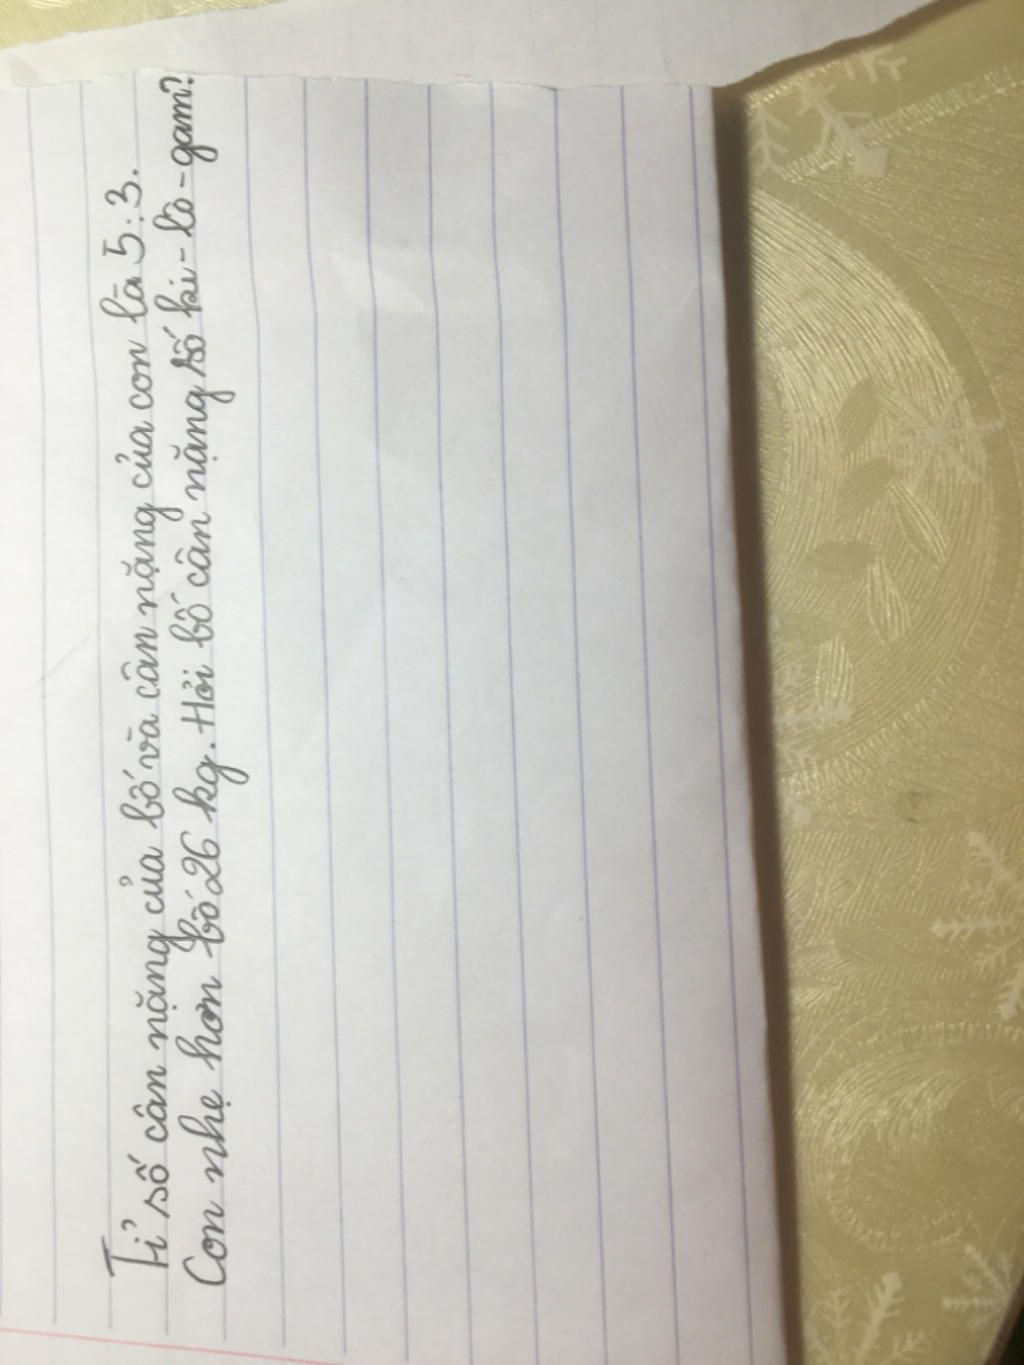 Tỉ số cân nặng của bố và cân nặng của con là 5:3.
Con nhẹ hơn bố 26 kg. Hỏi bố cân nặng số ki-lô-gam?